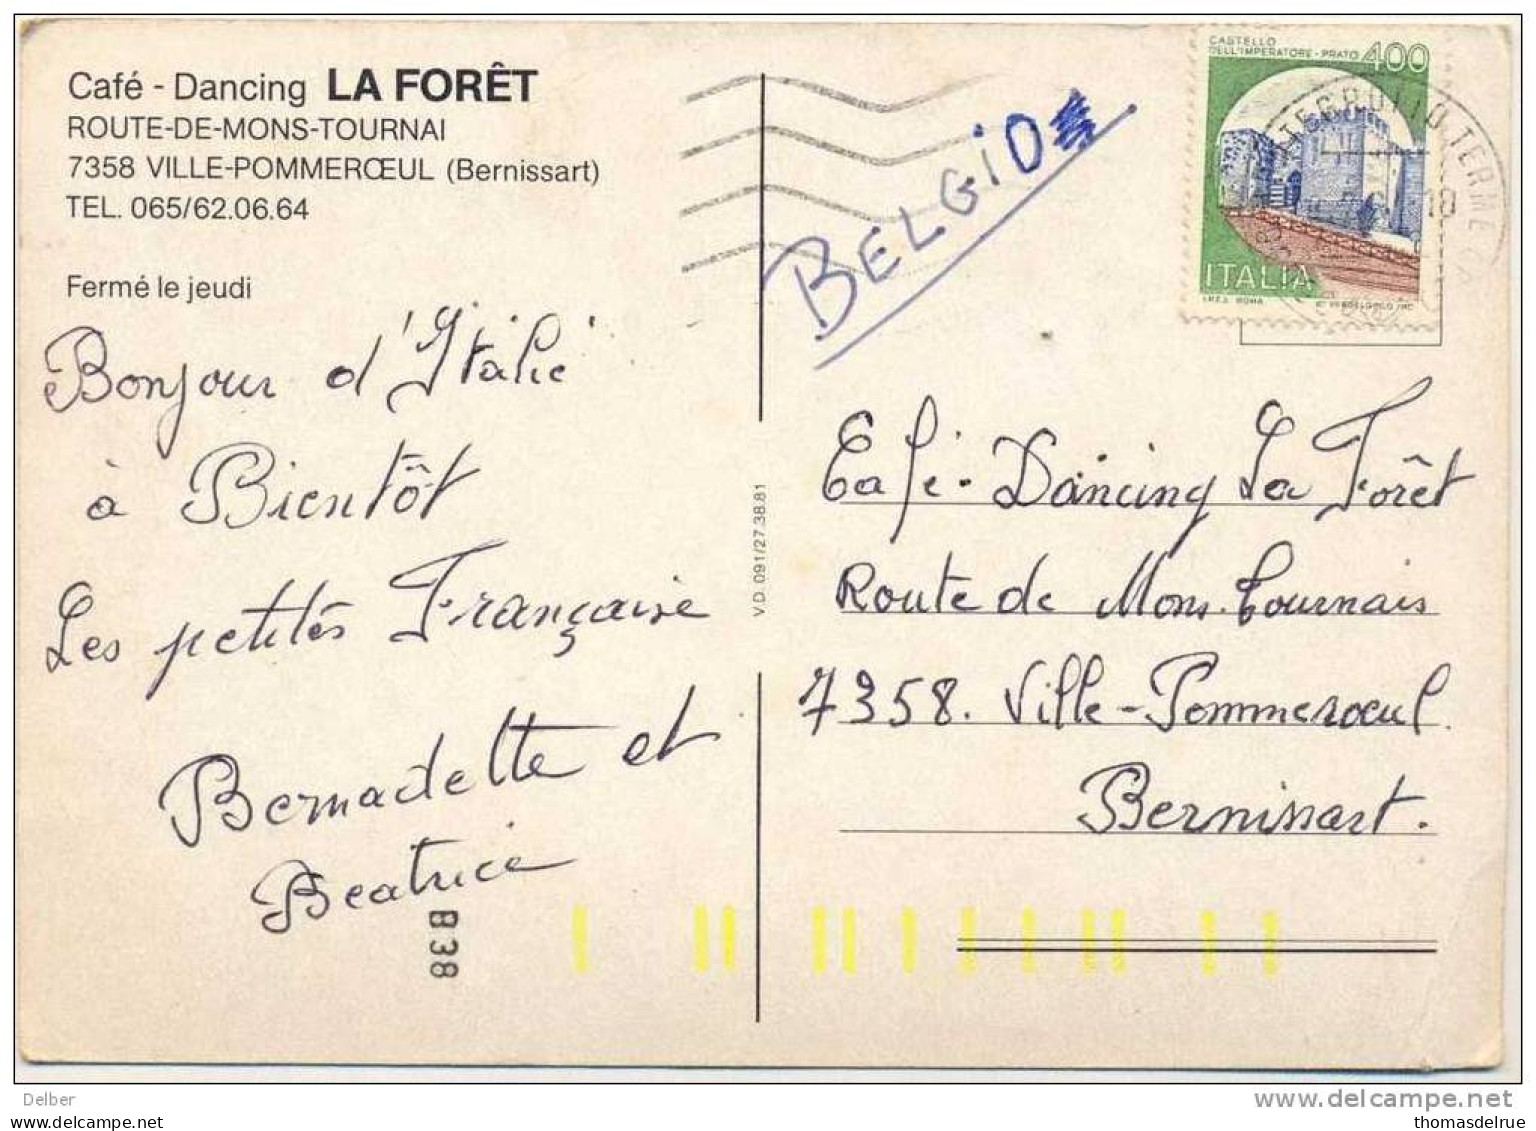 Café - Dancing LA FORÊT
ROUTE-DE-MONS-TOURNAI
7358 VILLE-POMMERŒUL (Bernissart)
TEL. 065/62.06.64
Fermé le jeudi
Bonjour d'Italie
à Bientôt
Les petites Française
Bernadette et
Beatrice
B 38
V.D. 091/27.38.81
BELGIO
CASTELLO
DELL'IMPERATORE - PRATO 400
ITALIA
I.P.Z.S. ROMA
TERME
18
Café - Dancing La Forêt
Route de Mons-Tournais
7358. Ville-Pommeroeul
Bernissart.
Delber
delcampe.net
http://delcampe-store.com/thomasdelrue